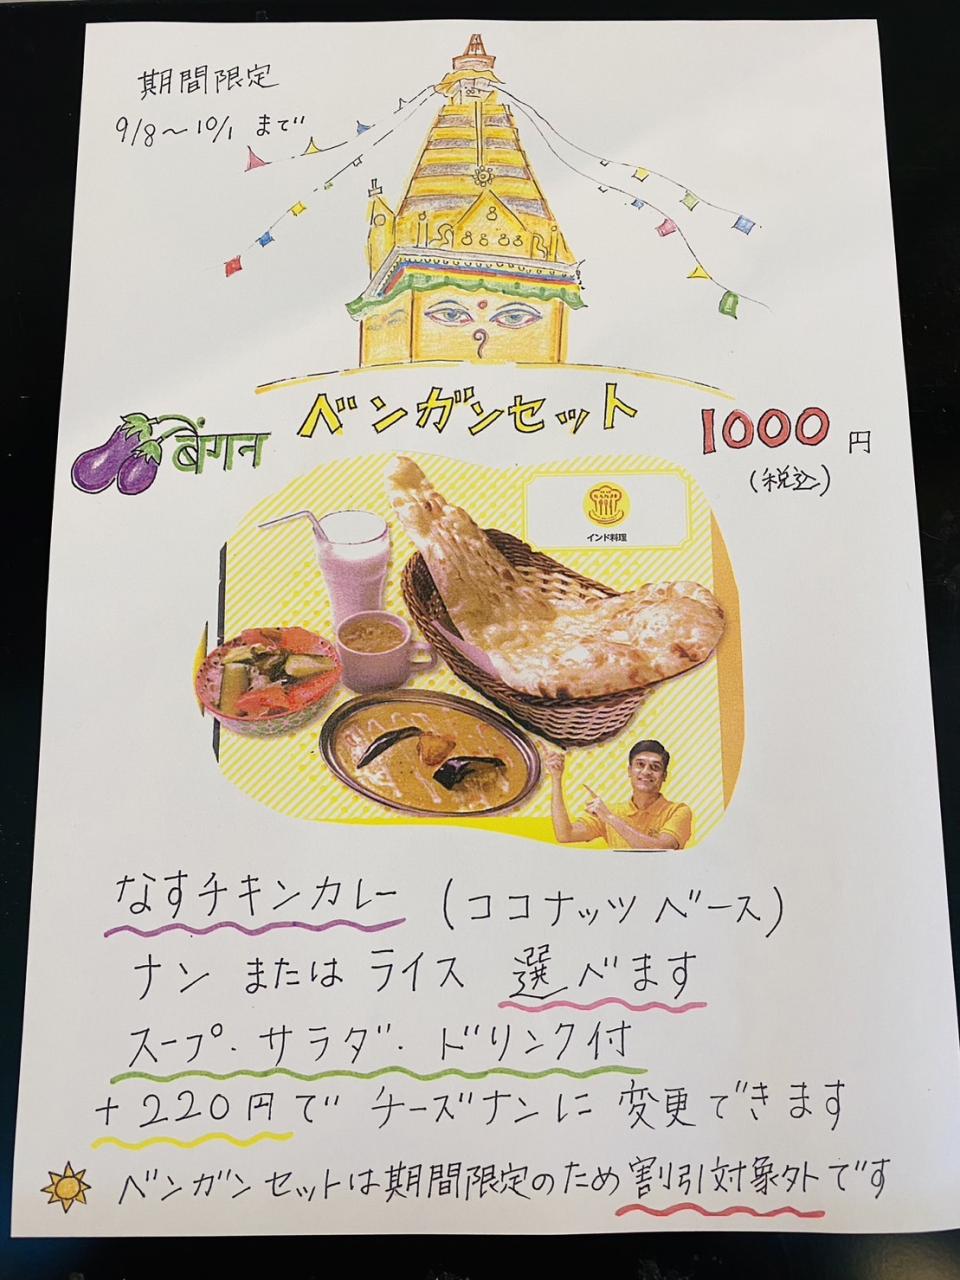 期間限定
9/8〜10/1 まで
ベンガンセット
बेंगन
1000円
(税込)
インド料理
なすチキンカレー (ココナッツベース)
ナン または ライス 選べます
スープ・サラダ・ドリンク付
+220円で チーズナンに 変更できます
ベンガンセットは期間限定のため割引対象外です